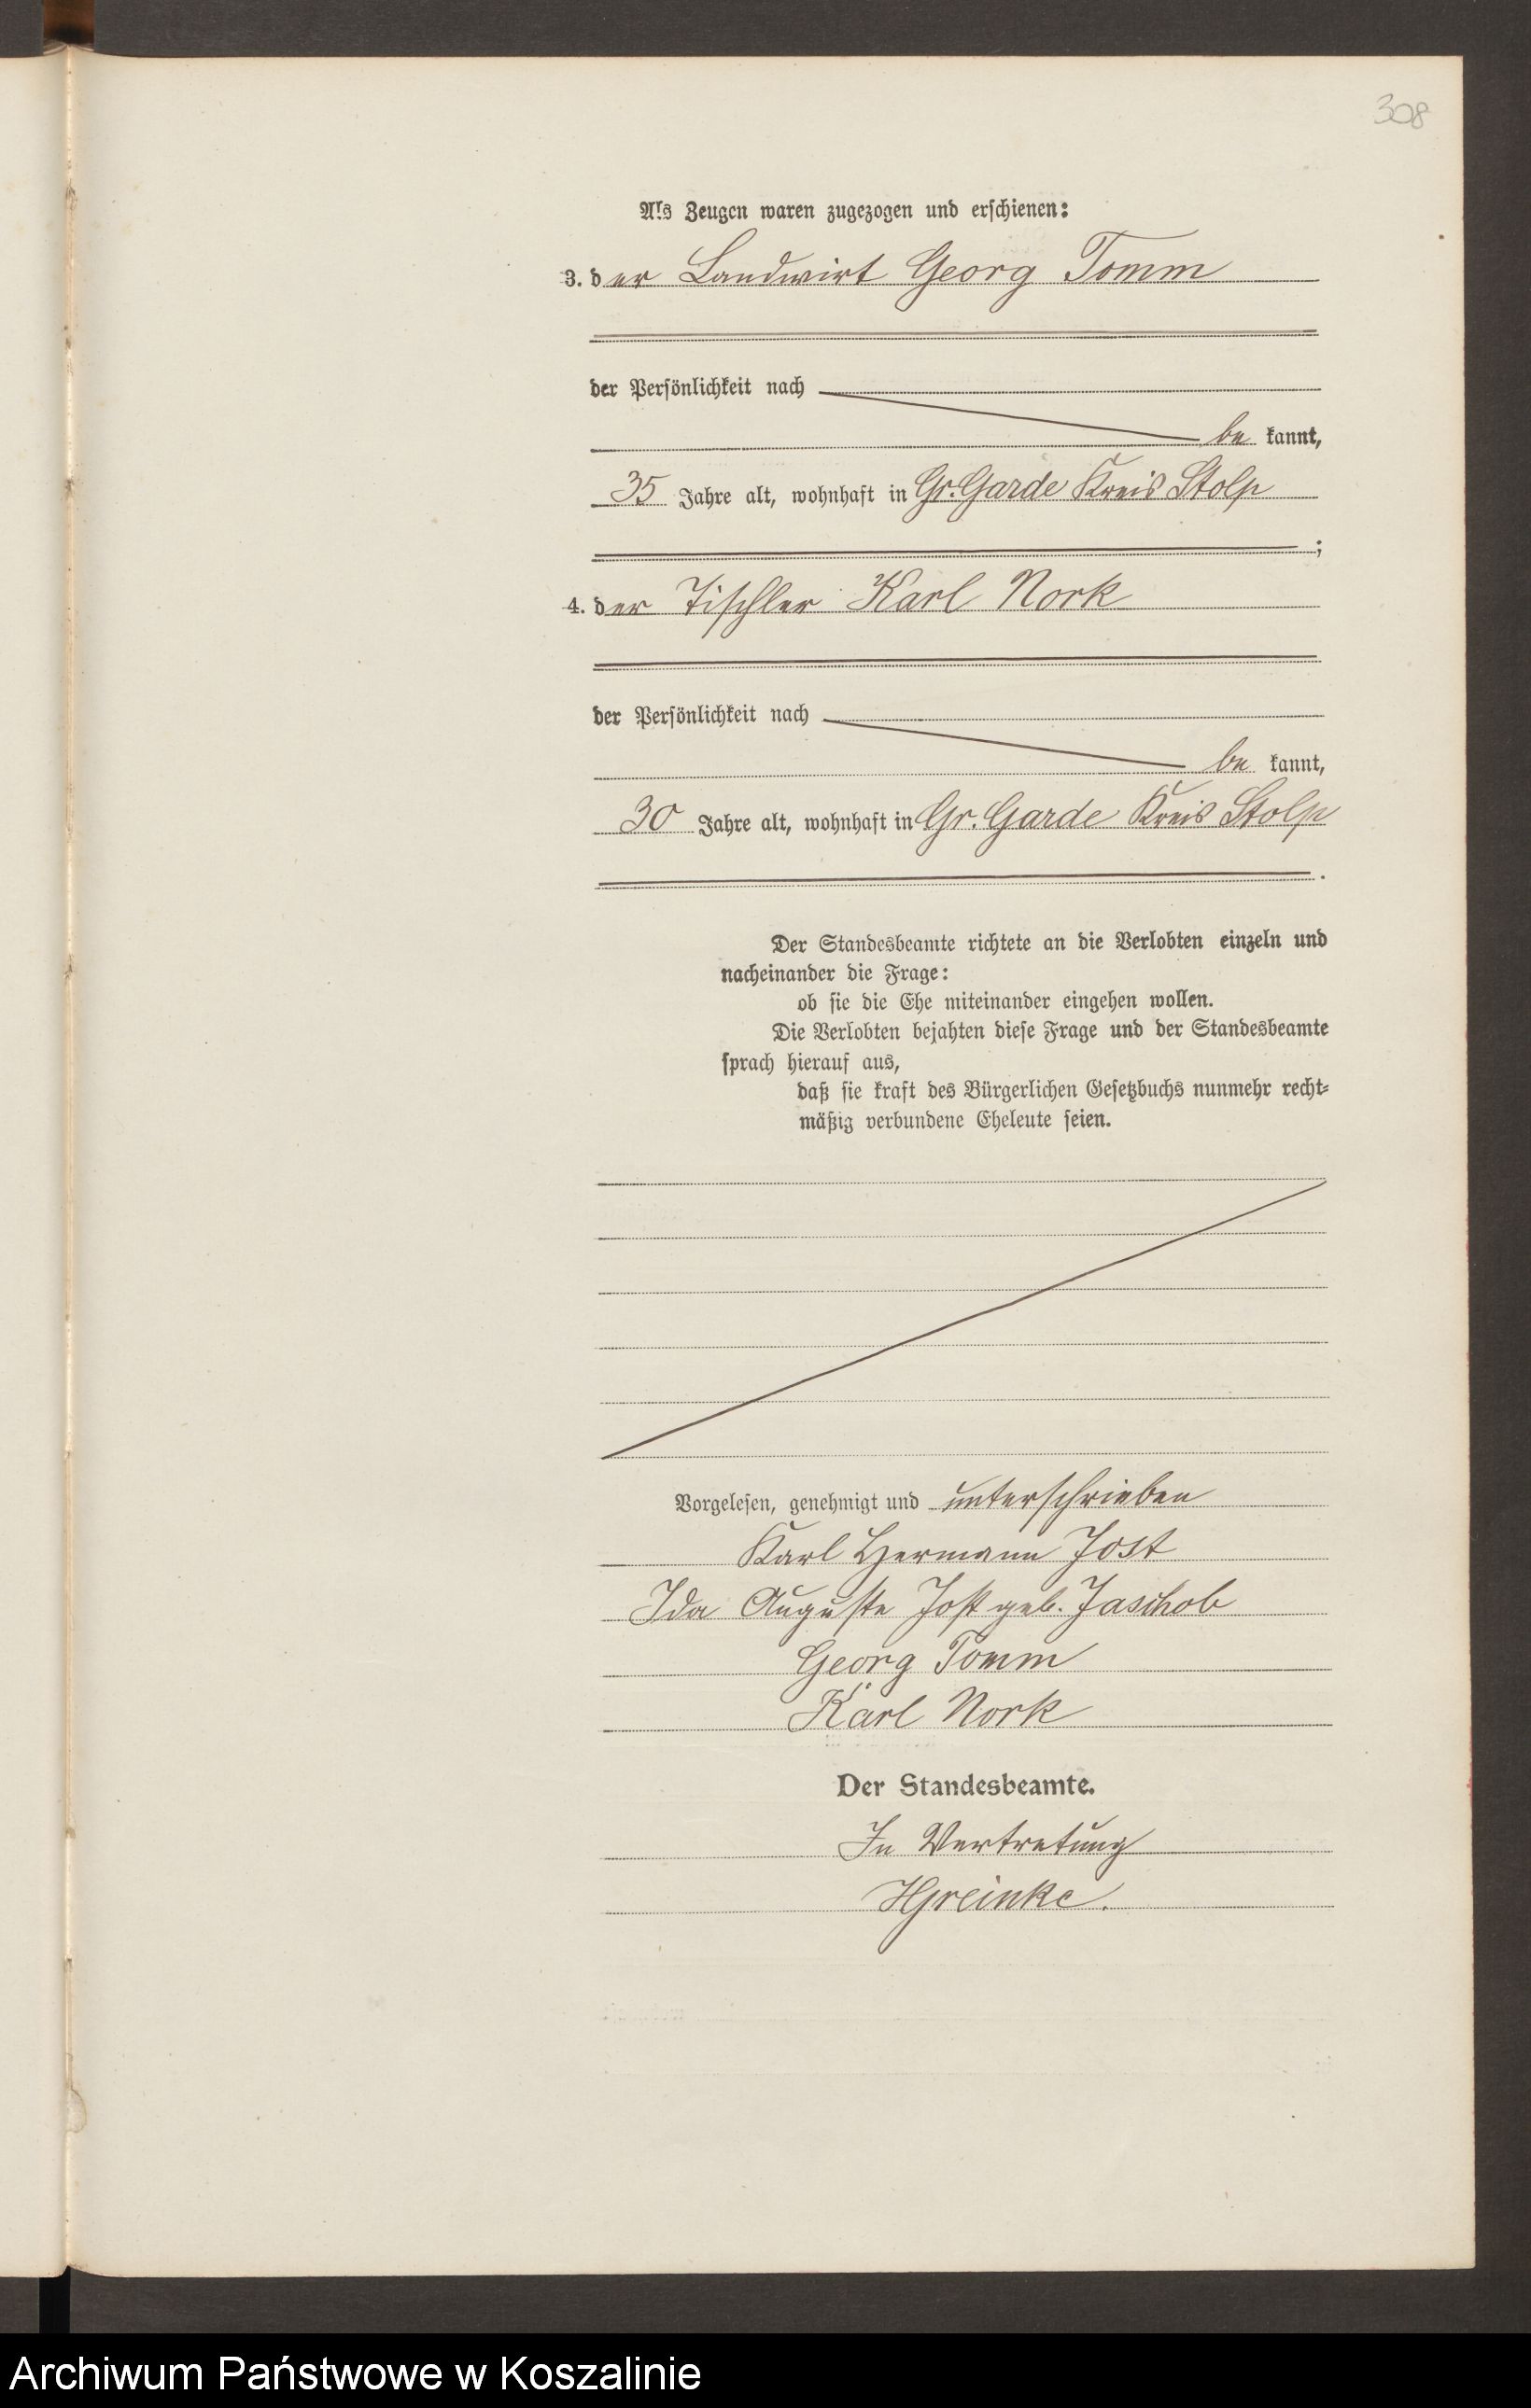 308
Als Zeugen waren zugezogen und erschienen:
3. der Landwirt Georg Tomm
der Persönlichkeit nach
be kannt,
35 Jahre alt, wohnhaft in Gr. Garde Kreis Stolp
;
4. der Tischler Karl Nork
der Persönlichkeit nach
be kannt,
30 Jahre alt, wohnhaft in Gr. Garde Kreis Stolp
.
Der Standesbeamte richtete an die Verlobten einzeln und
nacheinander die Frage:
ob sie die Ehe miteinander eingehen wollen.
Die Verlobten bejahten diese Frage und der Standesbeamte
sprach hierauf aus,
daß sie kraft des Bürgerlichen Gesetzbuchs nunmehr recht-
mäßig verbundene Eheleute seien.
Vorgelesen, genehmigt und unterschrieben
Karl Hermann Jost
Ida Auguste Jost geb. Jaschob
Georg Tomm
Karl Nork
Der Standesbeamte.
In Vertretung
HGreinke.
Archiwum Państwowe w Koszalinie